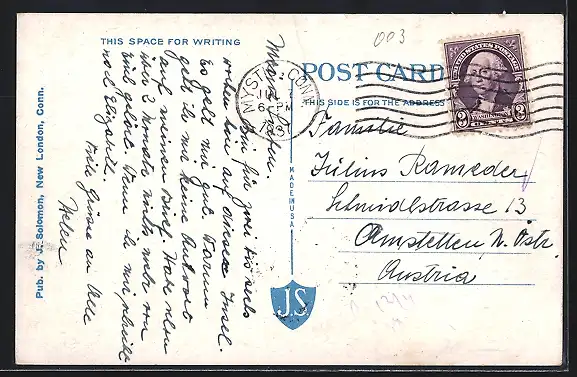 THIS SPACE FOR WRITING
Bin für zwei bis sechs
Wochen hier auf dieser Insel.
Es geht mir gut. Warum
gabt ihr mir keine Antwort
auf meinen Brief. Habe schon
über 2 Monate nichts mehr von
euch gehört. Wenn ihr mir schreibt
noch
Viele Grüsse an Alle
Helen
Pub. by J. Solomon, New London, Conn.
003
POST CARD
THIS SIDE IS FOR THE ADDRESS
MADE IN USA
JS
MYSTIC CONN.
6-PM
UNITED STATES POSTAGE
3
3
CENTS
Familie
Julius Rameder
Schmidlstrasse 13
Amstetten, N. Östr.
Austria